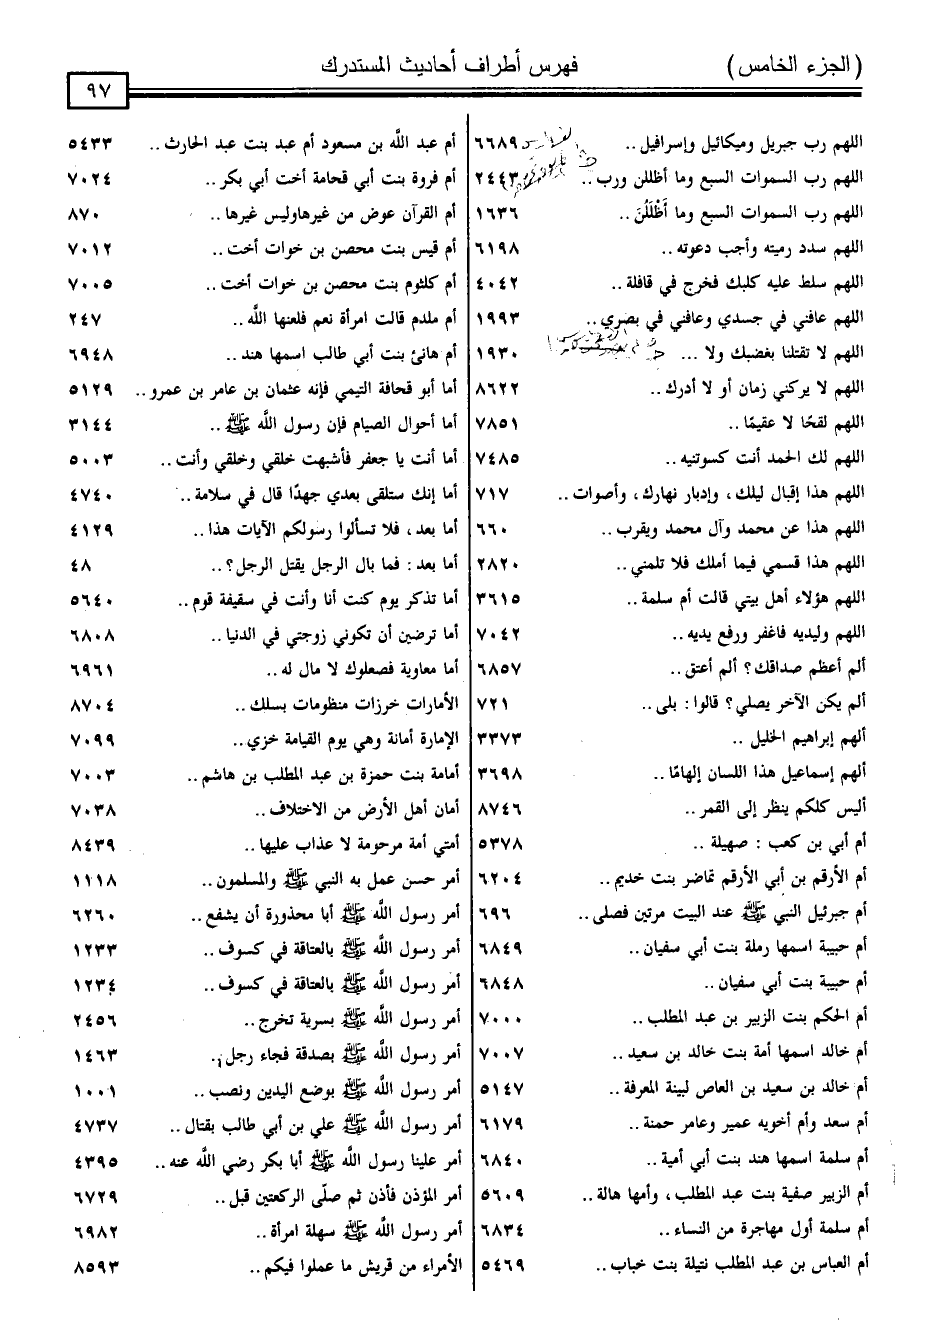 (الجزء الخامس)
فهرس أطراف أحاديث المستدرك
٩٧
اللهم رب جبريل وميكائيل وإسرافيل .. ٦٦٨٩
اللهم رب السموات السبع وما أظللن ورب .. ٢٤٤٣
اللهم رب السموات السبع وما أَظْلَلْنَ .. ١٦٣٦
اللهم سدد رميته وأجب دعوته .. ٦١٩٨
اللهم سلط عليه كلبك فخرج في قافلة .. ٤٠٤٢
اللهم عافني في جسدي وعافني في بصري .. ١٩٩٣
اللهم لا تقتلنا بغضبك ولا ... ١٩٣٠
اللهم لا يركني زمان أو لا أدرك .. ٨٦٢٢
اللهم لقحًا لا عقيمًا .. ٧٨٥١
اللهم لك الحمد أنت كسوتنيه .. ٧٤٨٥
اللهم هذا إقبال ليلك، وإدبار نهارك، وأصوات .. ٧١٧
اللهم هذا عن محمد وآل محمد ويقرب .. ٦٦٠
اللهم هذا قسمي فيما أملك فلا تلمني .. ٢٨٢٠
اللهم هؤلاء أهل بيتي قالت أم سلمة .. ٣٦١٥
اللهم وليديه فاغفر ورفع يديه .. ٧٠٤٢
ألم أعظم صداقك؟ ألم أعتق .. ٦٨٥٧
ألم يكن الآخر يصلي؟ قالوا: بلى .. ٧٢١
ألهم إبراهيم الخليل .. ٣٣٧٣
ألهم إسماعيل هذا اللسان إلهامًا .. ٣٦٩٨
أليس كلكم ينظر إلى القمر .. ٨٧٤٦
أم أبي بن كعب : صهيلة .. ٥٣٧٨
أم الأرقم بن أبي الأرقم تماضر بنت خديم .. ٦٢٠٤
أم جبرئيل النبي ﷺ عند البيت مرتين فصلى .. ٦٩٦
أم حبيبة اسمها رملة بنت أبي سفيان .. ٦٨٤٩
أم حبيبة بنت أبي سفيان .. ٦٨٤٨
أم الحكم بنت الزبير بن عبد المطلب .. ٧٠٠٠
أم خالد اسمها أمة بنت خالد بن سعيد .. ٧٠٠٧
أم خالد بن سعيد بن العاص لبينة المعرفة .. ٥١٤٧
أم سعد وأم أخويه عمير وعامر حمنة .. ٦١٧٩
أم سلمة اسمها هند بنت أبي أمية .. ٦٨٤٠
أم الزبير صفية بنت عبد المطلب، وأمها هالة .. ٥٦٠٩
أم سلمة أول مهاجرة من النساء .. ٦٨٣٤
أم العباس بن عبد المطلب نتيلة بنت خباب .. ٥٤٦٩
أم عبد اللَّه بن مسعود أم عبد بنت عبد الحارث .. ٥٤٣٣
أم فروة بنت أبي قحامة أخت أبي بكر .. ٧٠٢٤
أم القرآن عوض من غيرهاوليس غيرها .. ٨٧٠
أم قيس بنت محصن بن خوات أخت .. ٧٠١٢
أم كلثوم بنت محصن بن خوات أخت .. ٧٠٠٥
أم ملدم قالت امرأة نعم فلعنها اللَّه .. ٢٤٧
أم هانئ بنت أبي طالب اسمها هند .. ٦٩٤٨
أما أبو قحافة التيمي فإنه عثمان بن عامر بن عمرو .. ٥١٢٩
أما أحوال الصيام فإن رسول اللَّه ﷺ .. ٣١٤٤
أما أنت يا جعفر فأشبهت خلقي وخلقي وأنت .. ٥٠٠٣
أما إنك ستلقى بعدي جهدًا قال في سلامة .. ٤٧٤٠
أما بعد، فلا تسألوا رسولكم الآيات هذا .. ٤١٢٩
أما بعد : فما بال الرجل يقتل الرجل؟ .. ٤٨
أما تذكر يوم كنت أنا وأنت في سقيفة قوم .. ٥٦٤٠
أما ترضين أن تكوني زوجتي في الدنيا .. ٦٨٠٨
أما معاوية فصعلوك لا مال له .. ٦٩٦١
الأمارات خرزات منظومات بسلك .. ٨٧٠٤
الإمارة أمانة وهي يوم القيامة خزي .. ٧٠٩٩
أمامة بنت حمزة بن عبد المطلب بن هاشم .. ٧٠٠٣
أمان أهل الأرض من الاختلاف .. ٧٠٣٨
أمتي أمة مرحومة لا عذاب عليها .. ٨٤٣٩
أمر حسن عمل به النبي ﷺ والمسلمون .. ١١١٨
أمر رسول اللَّه ﷺ أبا محذورة أن يشفع .. ٦٢٦٠
أمر رسول اللَّه ﷺ بالعتاقة في كسوف .. ١٢٣٣
أمر رسول اللَّه ﷺ بالعتاقة في كسوف .. ١٢٣٤
أمر رسول اللَّه ﷺ بسرية تخرج .. ٢٤٥٦
أمر رسول اللَّه ﷺ بصدقة فجاء رجل .. ١٤٦٣
أمر رسول اللَّه ﷺ بوضع اليدين ونصب .. ١٠٠١
أمر رسول اللَّه ﷺ علي بن أبي طالب بقتال .. ٤٧٣٧
أمر علينا رسول اللَّه ﷺ أبا بكر رضي اللَّه عنه .. ٤٣٩٥
أمر المؤذن فأذن ثم صلّى الركعتين قبل .. ٦٧٢٩
أمر رسول اللَّه ﷺ سهلة امرأة .. ٦٩٨٢
الأمراء من قريش ما عملوا فيكم .. ٨٥٩٣